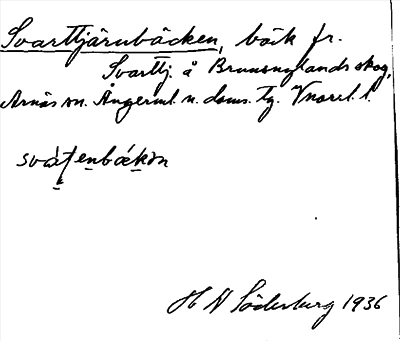 Svarttjärnbäcken, bäck fr.
Svarttj. å Brunsnylands skog,
Arnäs sn. Ångerml. n. doms. Tg. V norrl. l.
svát̨enbækən
H N Söderberg 1936